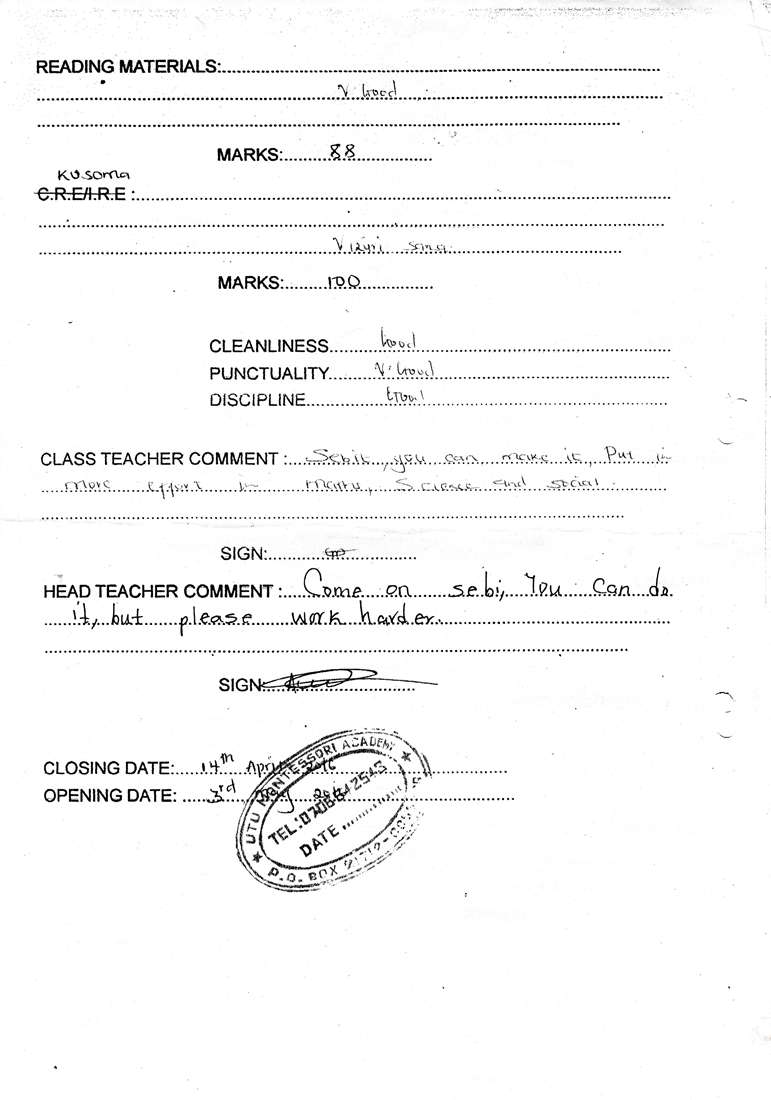 READING MATERIALS:
V. Good
MARKS: 88
Kusoma
C.R.E/I.R.E :
Vizuri sana
MARKS: 100
CLEANLINESS Good
PUNCTUALITY V. Good
DISCIPLINE Good
CLASS TEACHER COMMENT : Sebit, you can make it, Put in
more effort in Maths, Science and social.
SIGN:
HEAD TEACHER COMMENT : Come on sebi, You Can do
it, but please work harder.
SIGN:
CLOSING DATE: 14th April 2016
OPENING DATE: 3rd May
UTU MONTESSORI ACADEMY
DATE
P.O. BOX